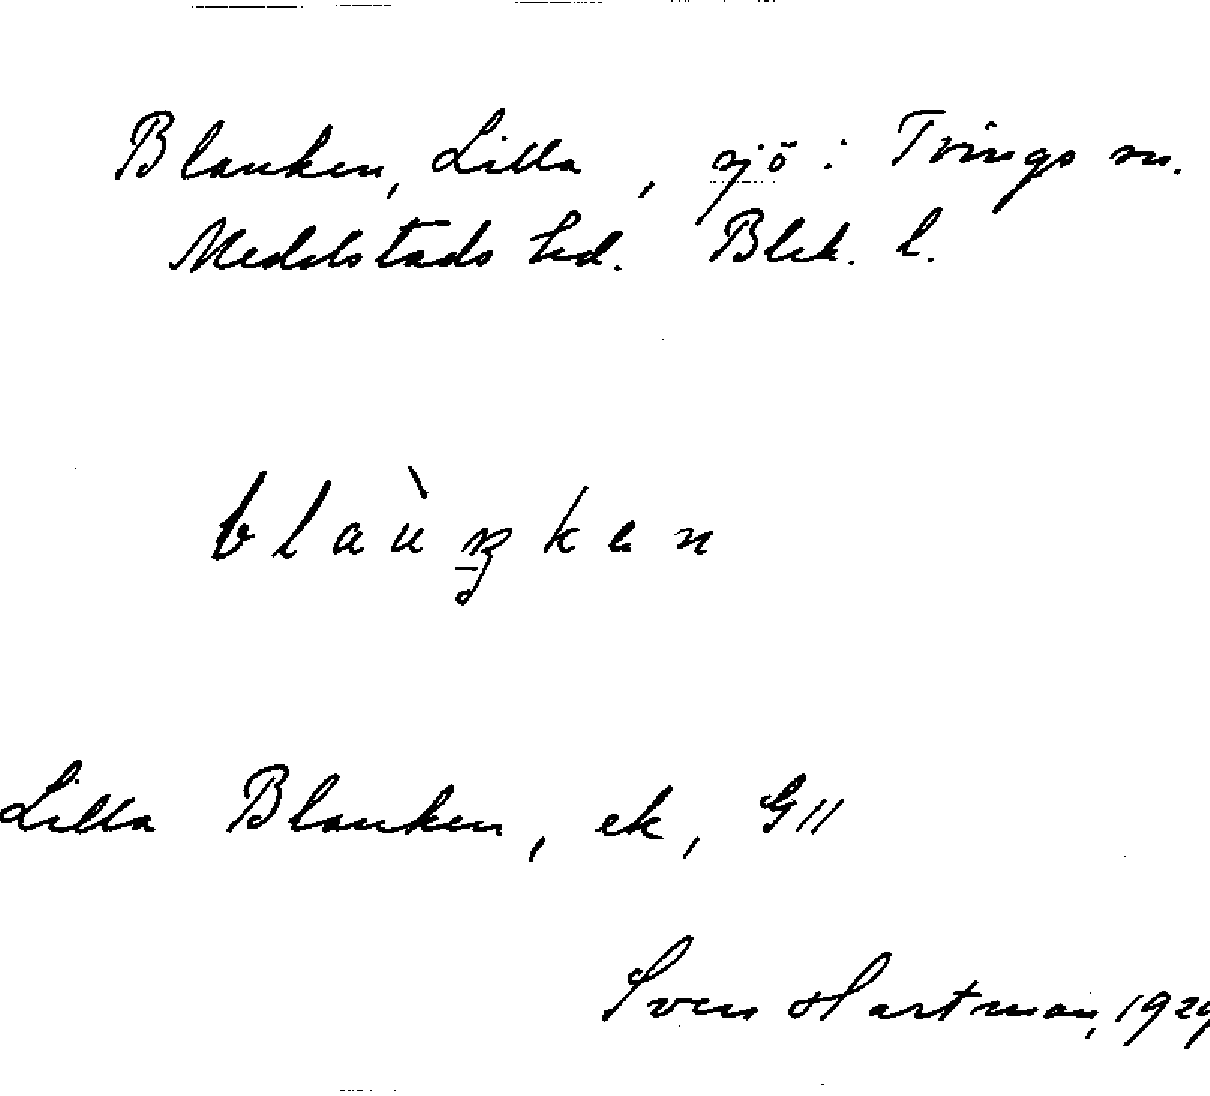 Blanken, Lilla, sjö i Tvings sn.
Medelstads hd. Blek. l.
Lilla Blanken, ek, G11
Sven Hartman, 192